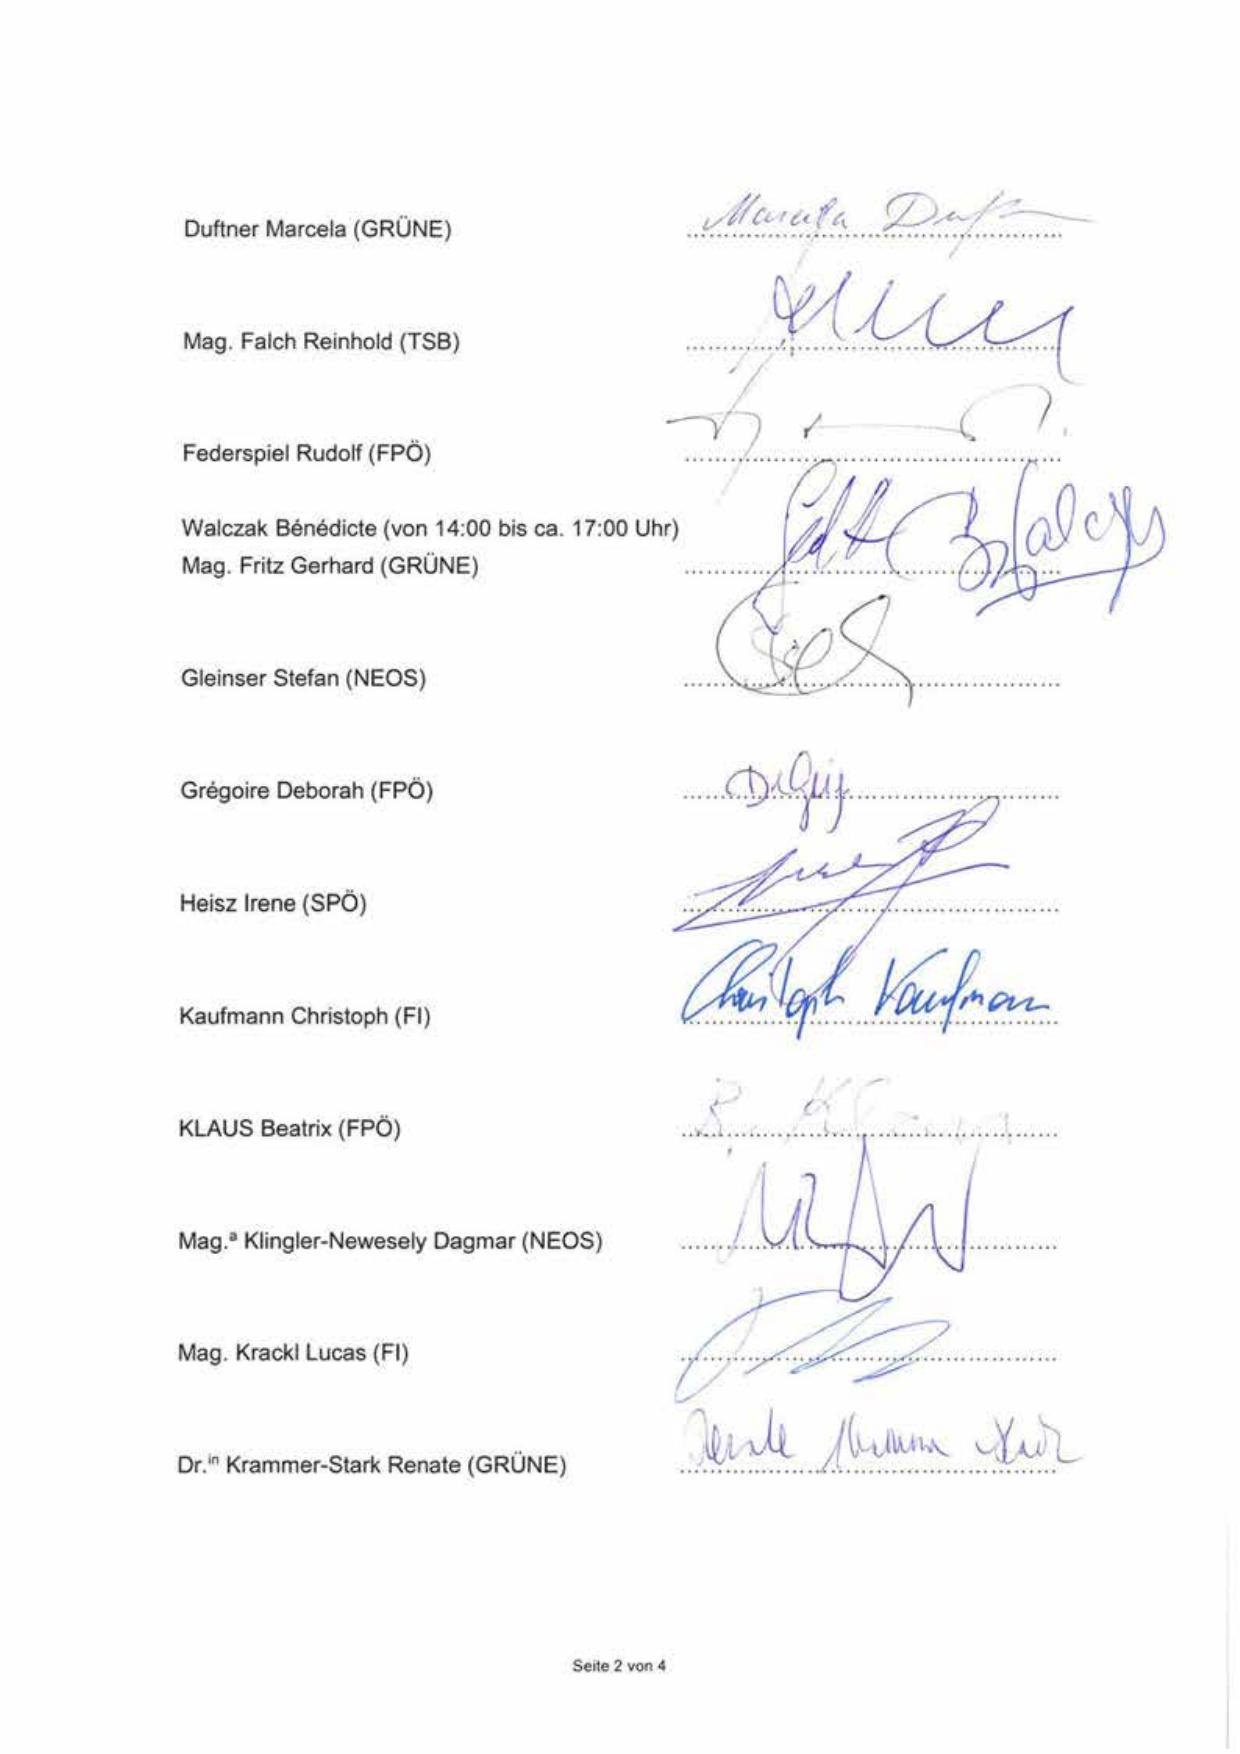 Duftner Marcela (GRÜNE) Marcela
Mag. Falch Reinhold (TSB)
Federspiel Rudolf (FPÖ)
Walczak Bénédicte (von 14:00 bis ca. 17:00 Uhr)
Mag. Fritz Gerhard (GRÜNE) B. Walczak
Gleinser Stefan (NEOS)
Grégoire Deborah (FPÖ)
Heisz Irene (SPÖ)
Kaufmann Christoph (FI) Christoph Kaufmann
KLAUS Beatrix (FPÖ) B. Klaus
Mag.ª Klingler-Newesely Dagmar (NEOS)
Mag. Krackl Lucas (FI)
Dr.ⁱⁿ Krammer-Stark Renate (GRÜNE) Renate
Seite 2 von 4